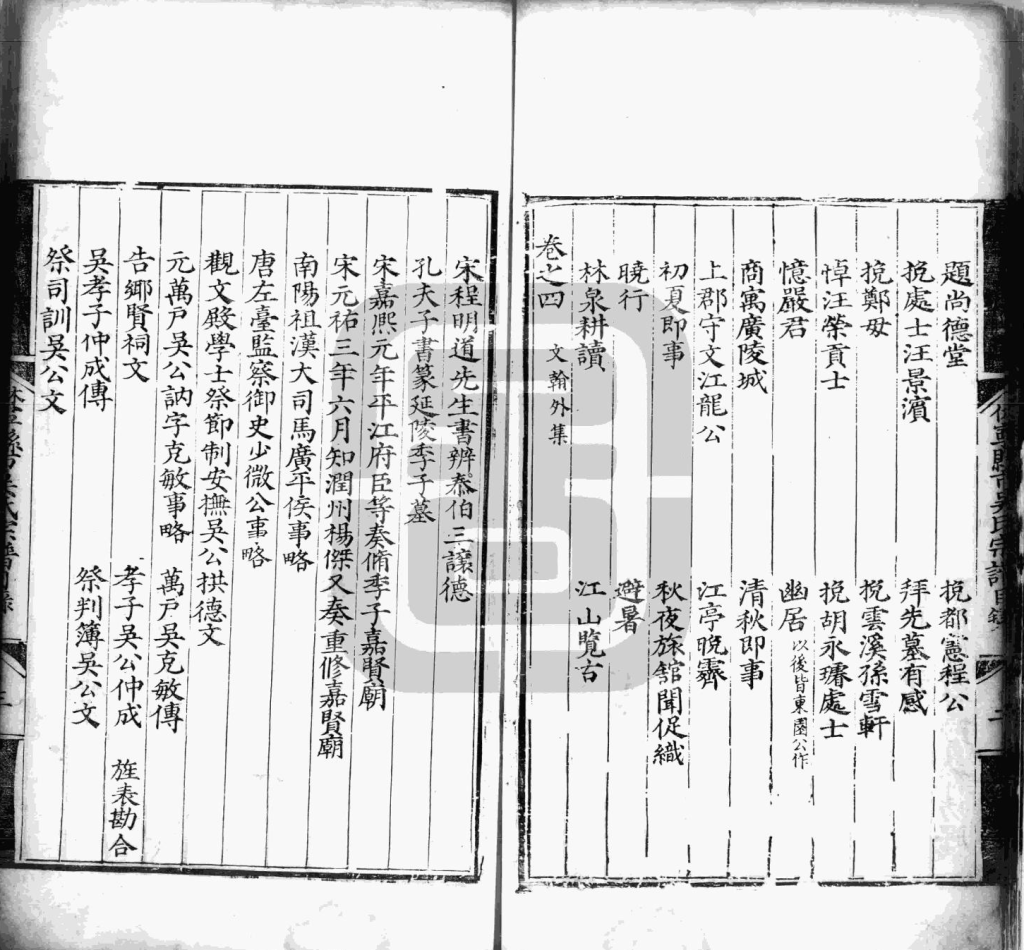 題尚德堂　挽都憲程公
挽處士汪景濱　拜先墓有感
挽鄭母　挽雲溪孫雪軒
悼汪榮貢士　挽胡永璿處士
憶嚴君　幽居以後皆東園公作
商寓廣陵城　清秋即事
上郡守文江龍公　江亭晚霽
初夏即事　秋夜旅舘聞促織
曉行　避暑
林泉耕讀　江山覽古
卷之四　文翰外集
宋程明道先生書辨泰伯三讓德
孔夫子書篆延陵季子墓
宋嘉熈元年平江府臣等奏脩季子嘉賢廟
宋元祐三年六月知潤州楊傑又奏重修嘉賢廟
南陽祖漢大司馬廣平侯事略
唐左臺監察御史少微公事略
觀文殿學士祭節制安撫吳公拱德文
元萬戶吳公訥字克敏事略　萬戶吳克敏傳
告鄉賢祠文　孝子吳公仲成　旌表勘合
吳孝子仲成傳　祭判簿吳公文
祭司訓吳公文